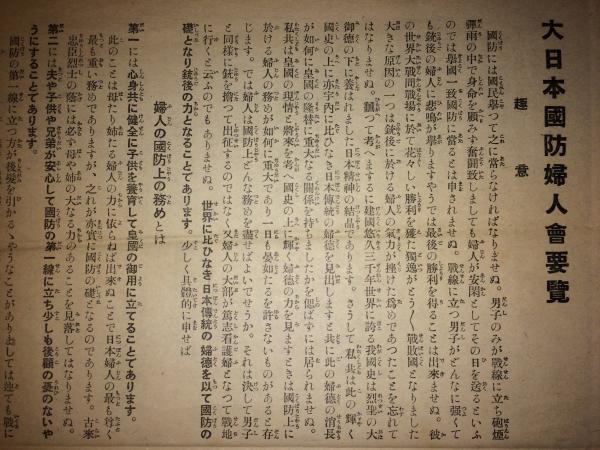 大日本國防婦人會要覽
趣意
國防には國民擧つて之に當らなければなりませぬ。男子のみが戰線に立ち砲煙
彈雨の中で身命を顧みず奮鬪致しましても婦人が安閑としてその日を送るといふ
のでは擧國一致國防に當るとは申されませぬ。戰線に立つ男子がどんなに强くて
も銃後の婦人に悲鳴が擧りますやうでは最後の勝利を得ることは出來ませぬ。彼
の世界大戰間戰場に於て花々しい勝利を獲た獨逸がとう〳〵戰敗國となりました
大きな原因の一つは銃後に於ける婦人の氣力が挫けた爲めであつたことを忘れて
はなりませぬ。飜つて考へまするに建國悠久三千年世界に誇る我國史は烈聖の大
御德の下に養はれました日本精神の結晶であります。さうして私共は此の輝く
國史の上に亦宇內に比ひなき日本傳統の婦德を見出しますと共に此の婦德の消長
が如何に皇國の隆替に重大なる關係を持ちましたかを偲ばずには居られませぬ。
私共は皇國の現情と將來を考へ國史の上に輝く婦德の力を見ますときは國防上に
於ける婦人の務めが如何に重大であり一日も晏如たるを許さないものがあると存
じます。では婦人は國防上どんな務めを盡せばよいでせうか。それは決して男子
と同樣に銃を擔つて出征するのではなく又婦人の大部が篤志看護婦となつて戰地
に行くと云ふのでもありませぬ。世界に比ひなき日本傳統の婦德を以て國防の
礎となり銃後の力となることであります。少しく具體的に申せば
婦人の國防上の務めとは
第一には心身共に健全に子供を養育して皇國の御用に立てることであります。
此のことは母たり姉たる婦人の力に依らねば出來ぬことで日本婦人の最も尊く
最も重い務めでありますが、之れが亦實に國防の礎となるのであります。古來
忠臣烈士の蔭には必ず母や姉の大なる力のあることを見落してはなりませぬ。
第二には夫や子供や兄弟が安心して國防の第一線に立ち少しも後顧の憂のないや
うにすることであります。
國防の第一線に立つ方が後髮を引かるゝやうなことがありましては迚ても戰に